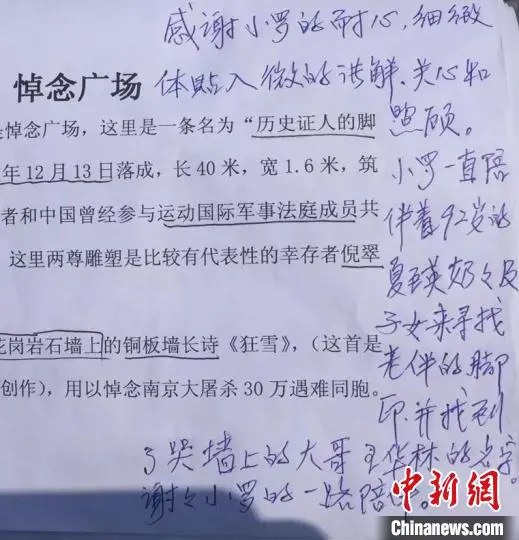 感谢小罗的耐心,细微
体贴入微的讲解、关心和
照顾。
小罗一直陪
伴着92岁的
夏玉英奶々及
子女来寻找
老伴的脚
印.并找到
了哭墙上的大哥王华林的名字。
谢々小罗的一路陪伴。
悼念广场
是悼念广场，这里是一条名为“历史证人的脚
年12月13日落成，长40米，宽1.6米，筑
者和中国曾经参与运动国际军事法庭成员共
这里两尊雕塑是比较有代表性的幸存者倪翠
花岗岩石墙上的铜板墙长诗《狂雪》，（这首是
创作），用以悼念南京大屠杀30万遇难同胞。
中新网
Chinanews.com